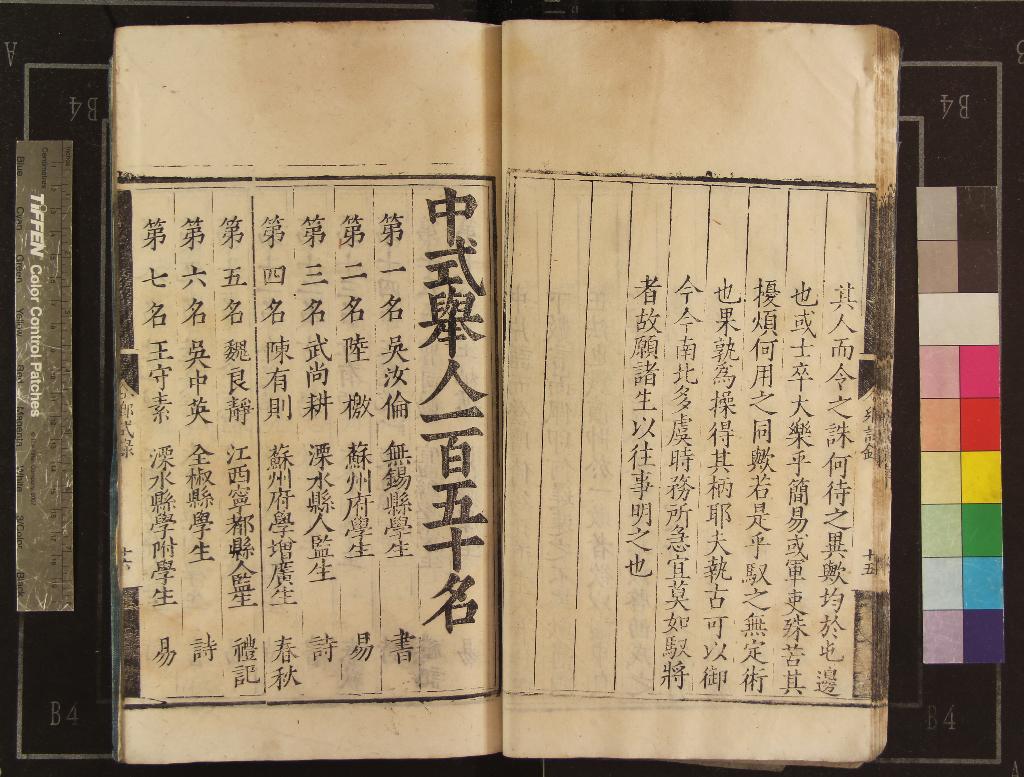 其人而令之誅何待之異歟均於屯邊
也或士卒大樂乎簡易或軍吏殊苦其
擾煩何用之同歟若是乎馭之無定術
也果孰為操得其柄耶夫執古可以御
今今南北多虞時務所急宜莫如馭將
者故願諸生以往事明之也
十五
中式舉人一百五十名
第一名吳汝倫 無錫縣學生 書
第二名陸檄 蘇州府學生 易
第三名武尚耕 溧水縣人監生 詩
第四名陳有則 蘇州府學增廣生 春秋
第五名魏良靜 江西寧都縣人監生 禮記
第六名吳中英 全椒縣學生 詩
第七名王守素 溧水縣學附學生 易
十六
B4
B4
B4
B4
TIFFEN Color Control Patches